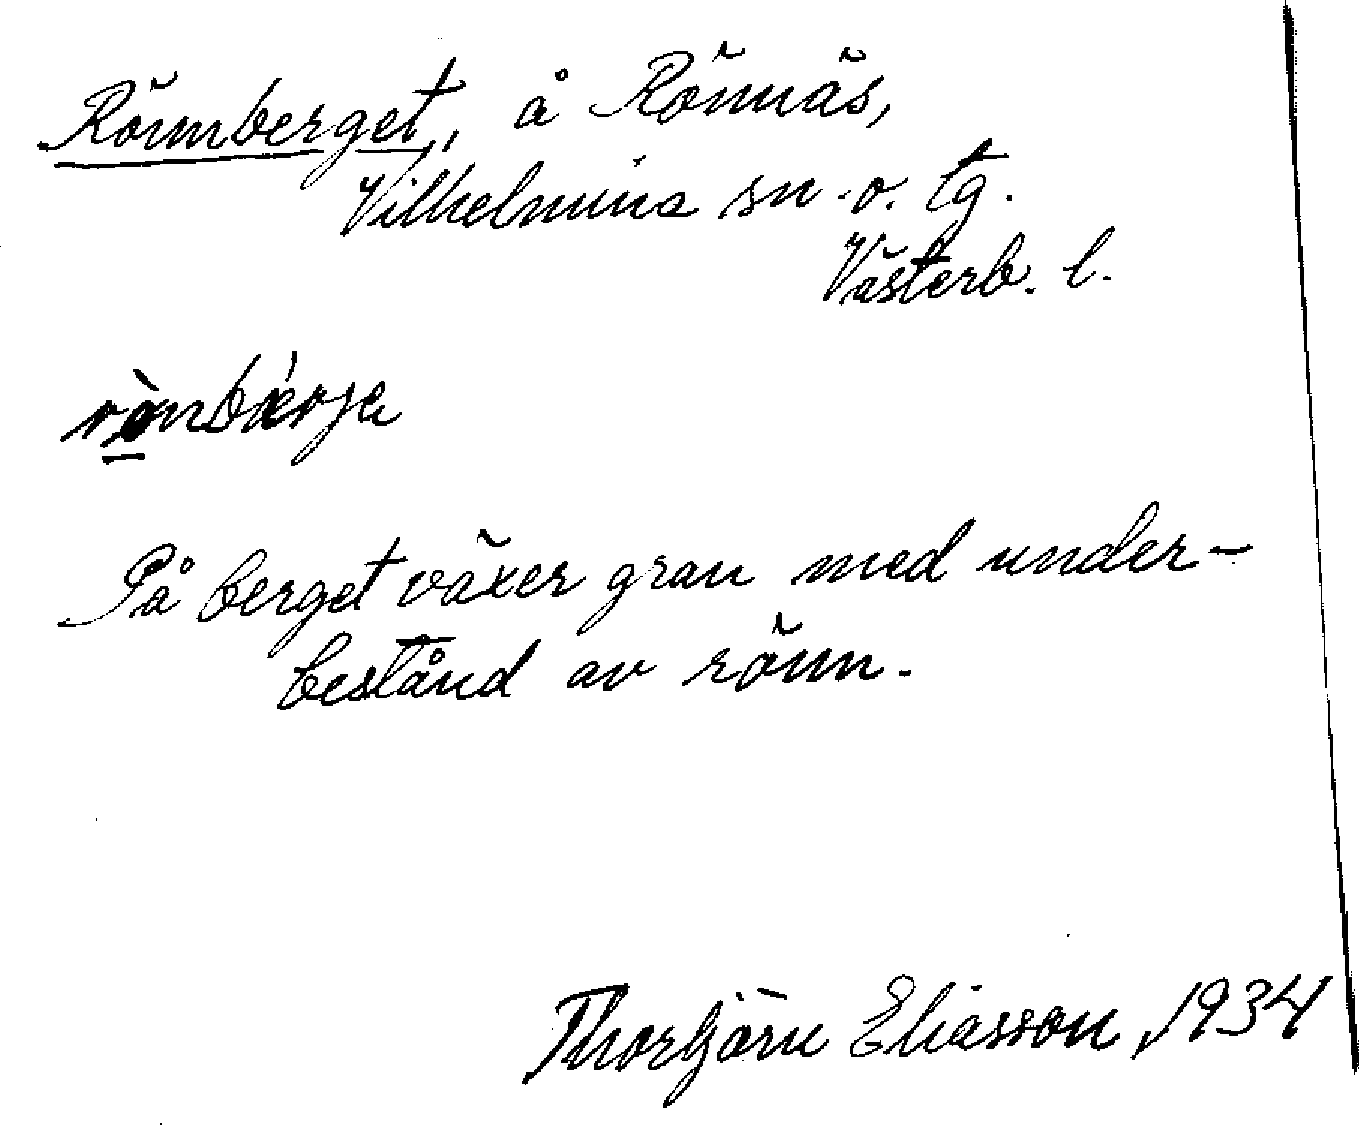 Rönnberget, å Rönnäs,
Vilhelmina sn o. tg.
Västerb. l.
På berget växer gran med under-
bestånd av rönn.
Thorbjörn Eliasson, 1934